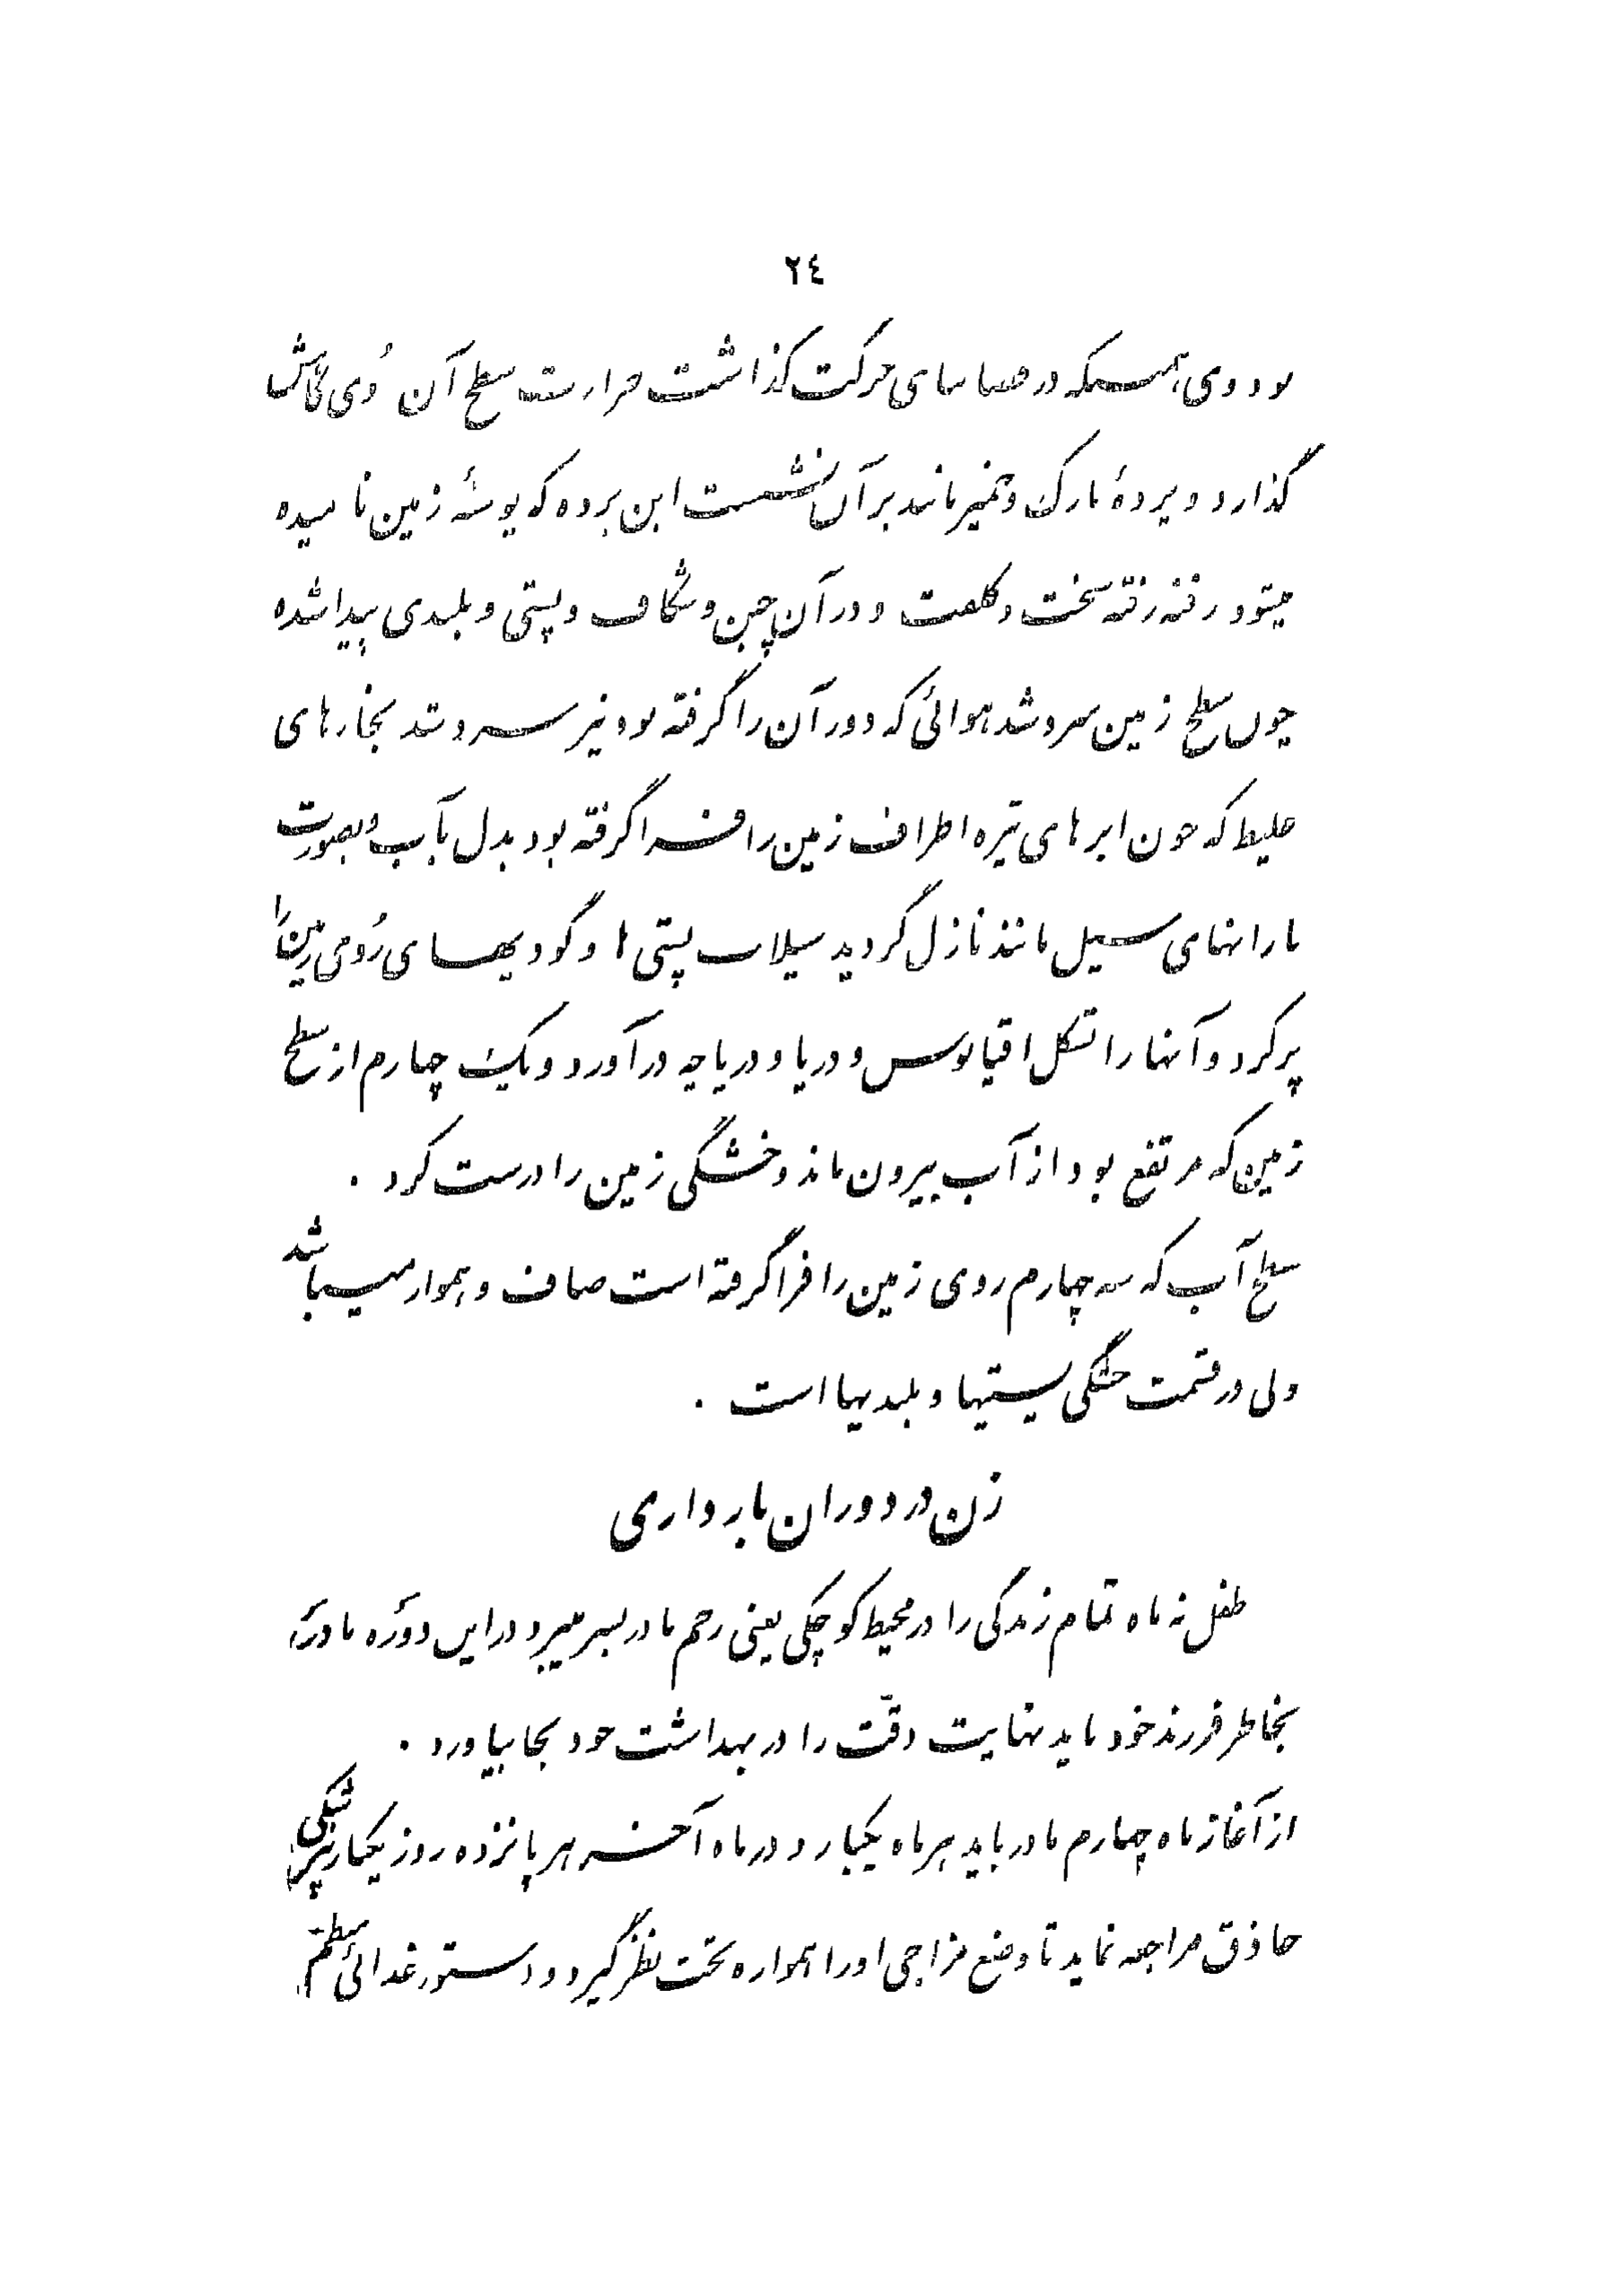 ٢٤
بود و وی همینکه در فضا بنای حرکت گذاشت حرارت سطح آن رُوی بکاهش
گذارد و پردهٔ نازک و خمیر مانند بر آن نشست این پرده که پوستهٔ زمین نامیده
میشود رفته رفته سخت و کلفت و در آن چین و شکاف و پستی و بلندی پیدا شده
چون سطح زمین سرد شد هوائی که دور آن را گرفته بود نیز سرد شد بخارهای
غلیظ که چون ابرهای تیره اطراف زمین را فرا گرفته بود بدل بآب و بصورت
بارانهای سیل مانند نازل گردید سیلاب پستی ها و گودیهای رُوی زمین را
پر کرد و آنها را بشکل اقیانوس و دریا و دریاچه در آورد و یک چهارم از سطح
زمین که مرتفع بود از آب بیرون ماند و خشگی زمین را درست کرد .
سطح آب که سه چهارم روی زمین را فرا گرفته است صاف و هموار میباشد
ولی در قسمت خشگی پستیها و بلندیها است .
زن در دوران بارداری
طفل نه ماه تمام زندگی را در محیط کوچکی یعنی رحم مادر بسر میبرد در این دوره مادر
بخاطر فرزند خود باید نهایت دقّت را در بهداشت خود بجا بیاورد .
از آغاز ماه چهارم مادر باید هر ماه یکبار و در ماه آخر هر پانزده روز یکبار پزشکی
حاذق مراجعه نماید تا وضع مزاجی او را همواره تحت نظر گیرد و دستور غذائی منظم